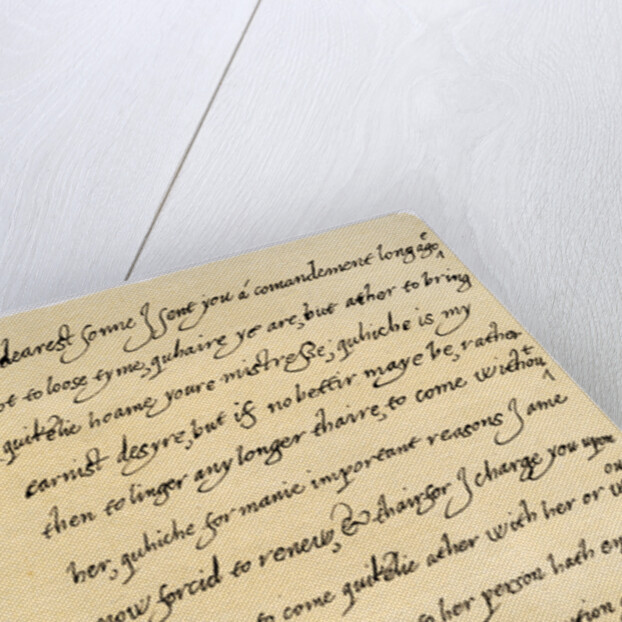 dearest sonne I sent you á comandement long agoe
to loose tyme, quhaire ye are, but ather to bring
quikelie hoame youre mistresse; quhiche is my
earnist desyre, but if no bettir maye be, rather
then to linger any longer thaire, to come without
her, quhiche for manie important reasons I ame
now forcid to renew, & thairfor I charge you upon
to come quikelie ather with her or
to her person hath